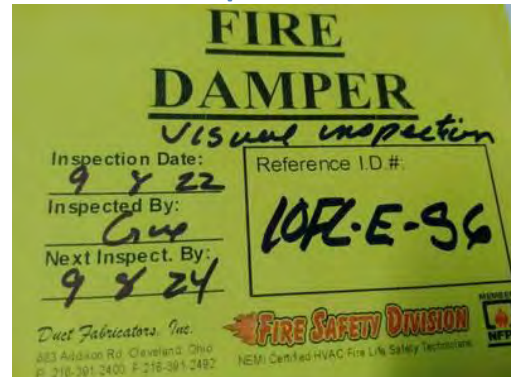 FIRE
DAMPER
Visual inspection
Inspection Date:
9 8 22
Inspected By:
Next Inspect. By:
9 8 24
Reference I.D.#:
10FL-E-96
Duct Fabricators, Inc.
883 Addison Rd. Cleveland, Ohio
P. 216-391-2400 F. 216-391-2492
FIRE SAFETY DIVISION
NEMI Certified HVAC Fire Life Safety Technicians
MEMBER
NFP